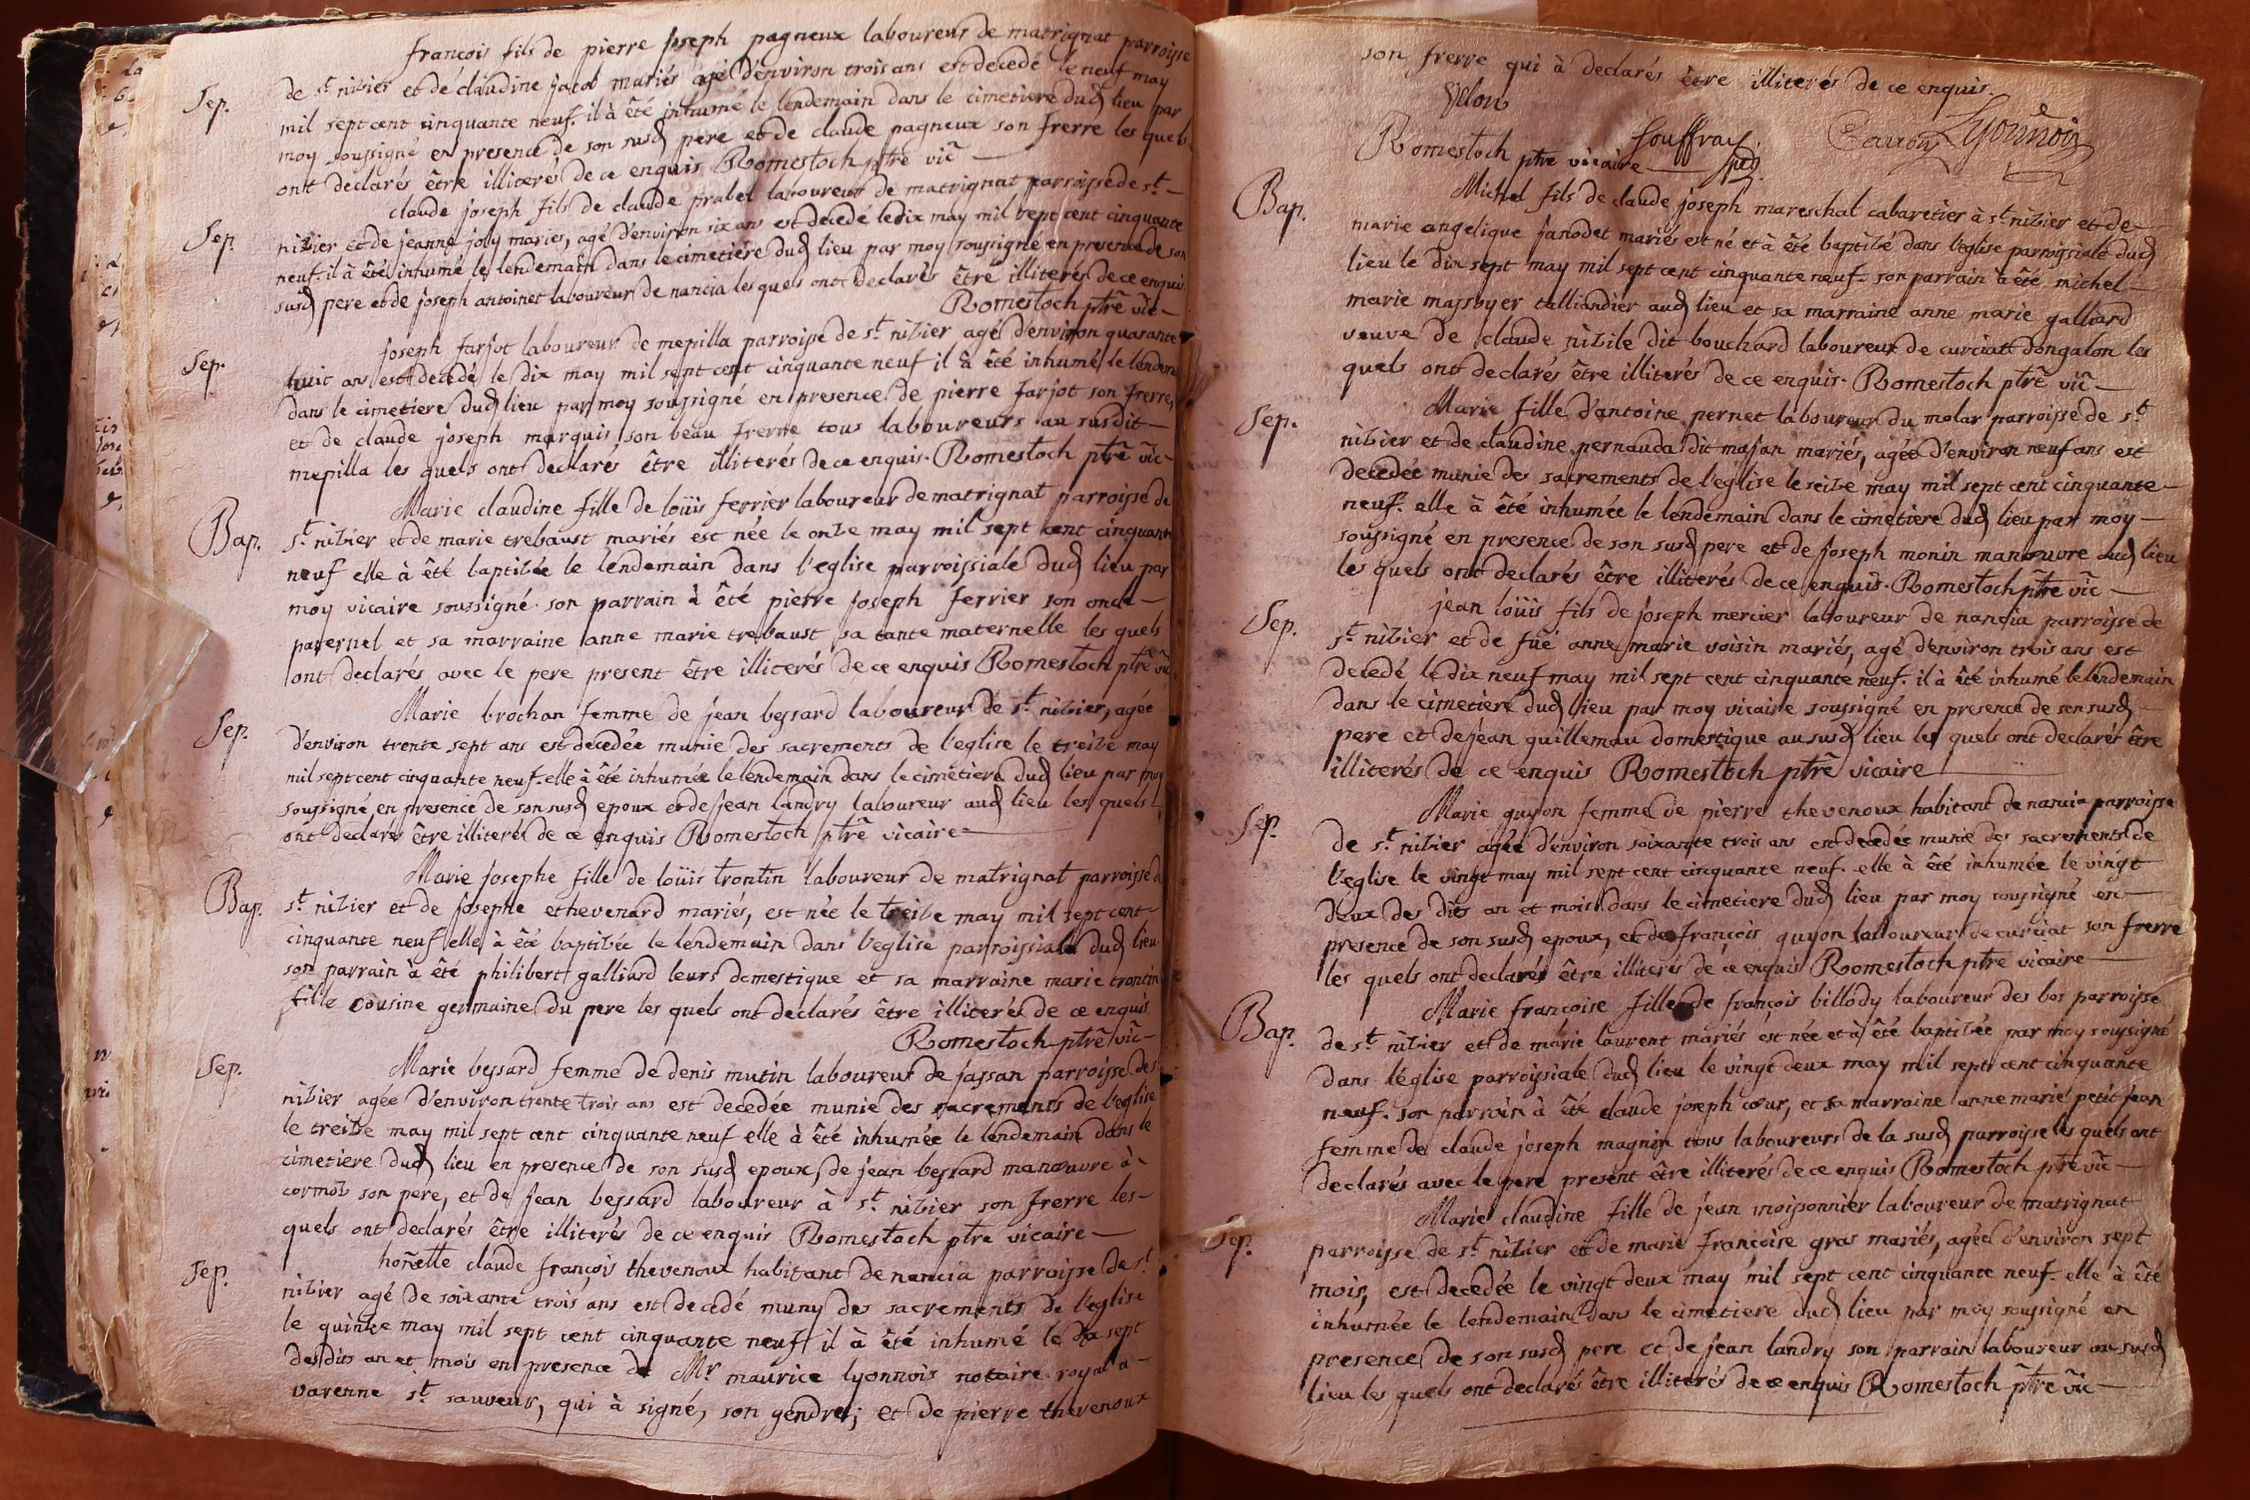 françois fils de pierre joseph pagneux laboureur de matrignat parroisse
Sep. de st nibier et de claudine jacob mariés agé d'environ trois ans est decedé le neuf may
mil sept cent cinquante neuf. il à été inhumé le lendemain dans le cimetiere dud lieu par
moy soussigné en presence de son susd pere et de claude pagneux son frerre les quels
ont declarés être illiterés de ce enquis Romestoch ptrē vic̄
claude joseph fils de claude prabel laboureur de matrignat parroisse de st
Sep. nibier et de jeanne joly mariés, agé d'environ six ans est decedé le dix may mil sept cent cinquante
neuf. il à été inhumé le lendemain dans le cimetiére dud lieu par moy soussigné en presence de son
susd pere et de joseph antoinet laboureur de nancia les quels ont declarés être illiterés de ce enquis
Romestoch ptrē vic̄
joseph farjot laboureur de mepilla parroisse de st nibier agé d'environ quarante
Sep. huit ans est decedé le dix may mil sept cent cinquante neuf il à été inhumé le lendem
dans le cimetiere dud lieu par moy soussigné en presence de pierre farjot son frerre,
et de claude joseph marquis son beau frerre tous laboureurs au susdit
mepilla les quels ont declarés être illiterés de ce enquis. Romestoch ptrē vic̄
Marie claudine fille de loüis ferrier laboureur de matrignat parroisse de
Bap. st nibier et de marie trebaust mariés est née le onze may mil sept cent cinquante
neuf elle à été baptisée le lendemain dans l'eglise parroissiale dud lieu par
moy vicaire soussigné. son parrain à été pierre joseph ferrier son oncle
paternel et sa marraine anne marie trebaust sa tante maternelle les quels
ont declarés avec le pere present être illiterés de ce enquis Romestoch ptrē vic̄
Marie brochan femme de jean bessard laboureur de st nibier, agée
Sep. d'environ trente sept ans est decedée munie des sacrements de l'eglise le treize may
mil sept cent cinquante neuf. elle à été inhumée le lendemain dans le cimetiere dud lieu par moy
soussigné en presence de son susd epoux et de jean landry laboureur aud lieu les quels
ont declarés être illiterés de ce enquis Romestoch ptrē vicaire
Marie josephe fille de loüis trontin laboureur de matrignat parroisse d
Bap. st nibier et de josephe ethevenard mariés, est née le treize may mil sept cent
cinquante neuf elle à été baptisée le lendemain dans l'eglise parroissiale dud lieu
son parrain à été philibert galliard leurs domestique et sa marraine marie trontin
fille cousine germaine du pere les quels ont declarés être illiterés de ce enquis
Romestoch ptrē vic̄
Marie bessard femme de denis mutin laboureur de jassan parroisse de st
Sep. nibier agée d'environ trente trois ans est decedée munie des sacrements de l'eglise
le treize may mil sept cent cinquante neuf elle à été inhumée le lendemain dans le
cimetiere dud lieu en presence de son susd epoux, de jean bessard manœuvre à
cormoz son pere, et de jean bessard laboureur à st nibier son frerre les
quels ont declarés être illiterés de ce enquis Romestoch ptrē vicaire
hoñette claude françois thevenoux habitant de nancia parroisse de st
Sep. nibier agé de soixante trois ans est decedé muny des sacrements de l'eglise
le quinze may mil sept cent cinquante neuf il à été inhumé le dix sept
des dits an et mois en presence de Mr maurice lyonnois notaire royal a
varenne st sauveur, qui à signé, son gendre; et de pierre thevenoux
son frerre qui à declarés être illiterés de ce enquis.
Lyonnois
Romestoch ptre vicaire
Michel fils de claude joseph mareschal cabaretier à st nibier et de
Bap. marie angelique janodet mariés est né et à été baptisé dans l'eglise parroissiale dud
lieu le dix sept may mil sept cent cinquante neuf. son parrain à été michel
marie massoyer talliandier aud lieu et sa marraine anne marie galliard
veuve de claude nibile dit bouchard laboureur de curciat dongalon les
quels ont declarés être illiterés de ce enquis. Romestoch ptrē vic̄
Marie fille d'antoine pernet laboureur du molar parroisse de st
Sep. nibier et de claudine pernauda dit majan mariés, agée d'environ neuf ans est
decedée munie des sacrements de l'eglise le seize may mil sept cent cinquante
neuf. elle à été inhumée le lendemain dans le cimetiere dud lieu par moy
soussigné en presence de son susd pere et de joseph monin manœuvre aud lieu
les quels ont declarés être illiterés de ce enquis. Romestoch ptrē vic̄
jean loüis fils de joseph mercier laboureur de nancia parroisse de
Sep. st nibier et de füé anne marie voisin mariés, agé d'environ trois ans est
decedé le dix neuf may mil sept cent cinquante neuf. il à été inhumé le lendemain
dans le cimetiere dud lieu par moy vicaire soussigné en presence de son susd
pere et de jean guillemau domestique au susd lieu les quels ont declarés être
illiterés de ce enquis Romestoch ptrē vicaire
Marie guyon femme de pierre thevenoux habitant de nancia parroisse
Sep. de st nibier agée d'environ soixante trois ans est decedée munie des sacrements de
l'eglise le vingt may mil sept cent cinquante neuf. elle à été inhumée le vingt
deux des dits an et mois dans le cimetiere dud lieu par moy soussigné en
presence de son susd epoux, et de françois guyon laboureur de curciat son frerre
les quels ont declarés être illiterés de ce enquis Romestoch ptrē vicaire
Marie francoise fille de françois billody laboureur des bos parroisse
Bap. de st nibier et de marie laurent mariés est née et à été baptisée par moy soussigné
dans l'église parroissiale dud lieu le vingt deux may mil sept cent cinquante
neuf. son parrain à été claude joseph cœur, et sa marraine anne marie petit jean
femme de claude joseph magnin tous laboureurs de la susd parroisse les quels ont
declarés avec le pere present être illiterés de ce enquis Romestoch ptre vic̄
Marie claudine fille de jean moissonnier laboureur de matrignat
Sep. parroisse de st nibier et de marie françoise gras mariés, agée d'environ sept
mois, est decedée le vingt deux may mil sept cent cinquante neuf. elle à été
inhumée le lendemain dans le cimetiere dud lieu par moy soussigné en
presence de son susd pere et de jean landry son parrain laboureur au susd
lieu les quels ont declarés être illiterés de ce enquis Romestoch ptrē vic̄